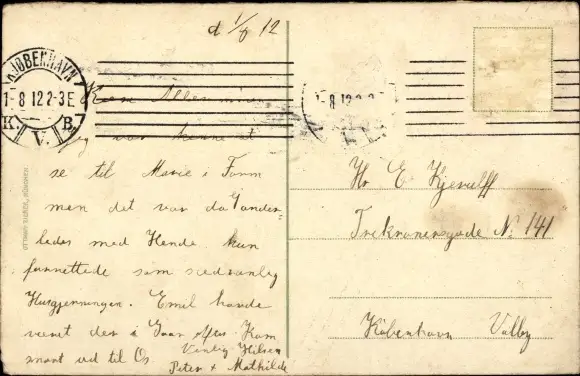 d 1/8 12
KJØBENHAVN
1-8 12 2-3 E
K. V. B.
Kære Alle
Jeg var henne at
se til Marie i Farum
men det var da
ledes med Hende. hun
som sædvanlig
Husgjerningen. Emil havde
været der i Gaar aftes. Kom
snart ud til Os. Venlig Hilsen
Peter + Mathilde
Hr E Kjerulff
Trekronersgade No 141
København Valby